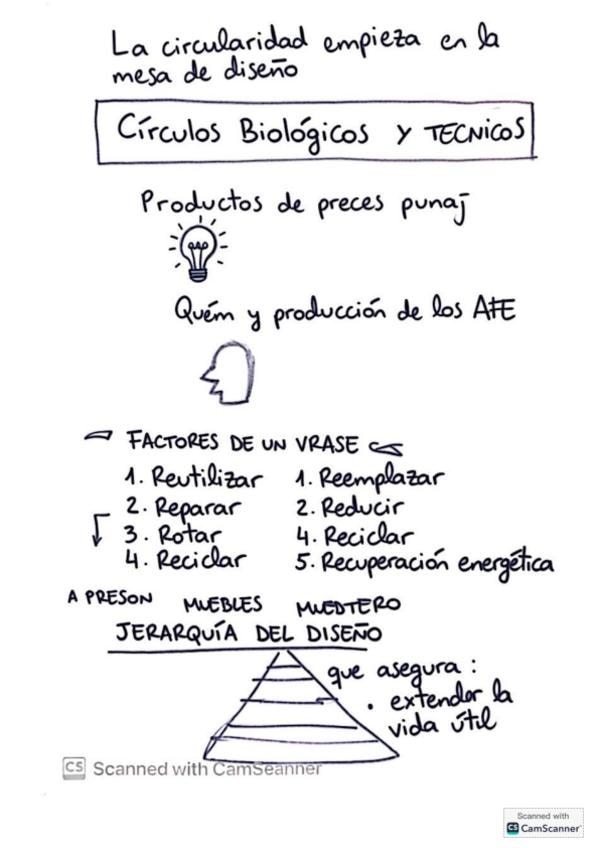 La circularidad empieza en la
mesa de diseño
Círculos Biológicos y TECNICOS
Productos de preces punaj
Quém y producción de los AtE
FACTORES DE UN VRASE
1. Reutilizar
2. Reparar
3. Rotar
4. Reciclar
1. Reemplazar
2. Reducir
4. Reciclar
5. Recuperación energética
A PRESON MUEBLES MUEDTERO
JERARQUÍA DEL DISEÑO
que asegura:
• extender la
vida útil
CS Scanned with CamSeanner
Scanned with
CS CamScanner